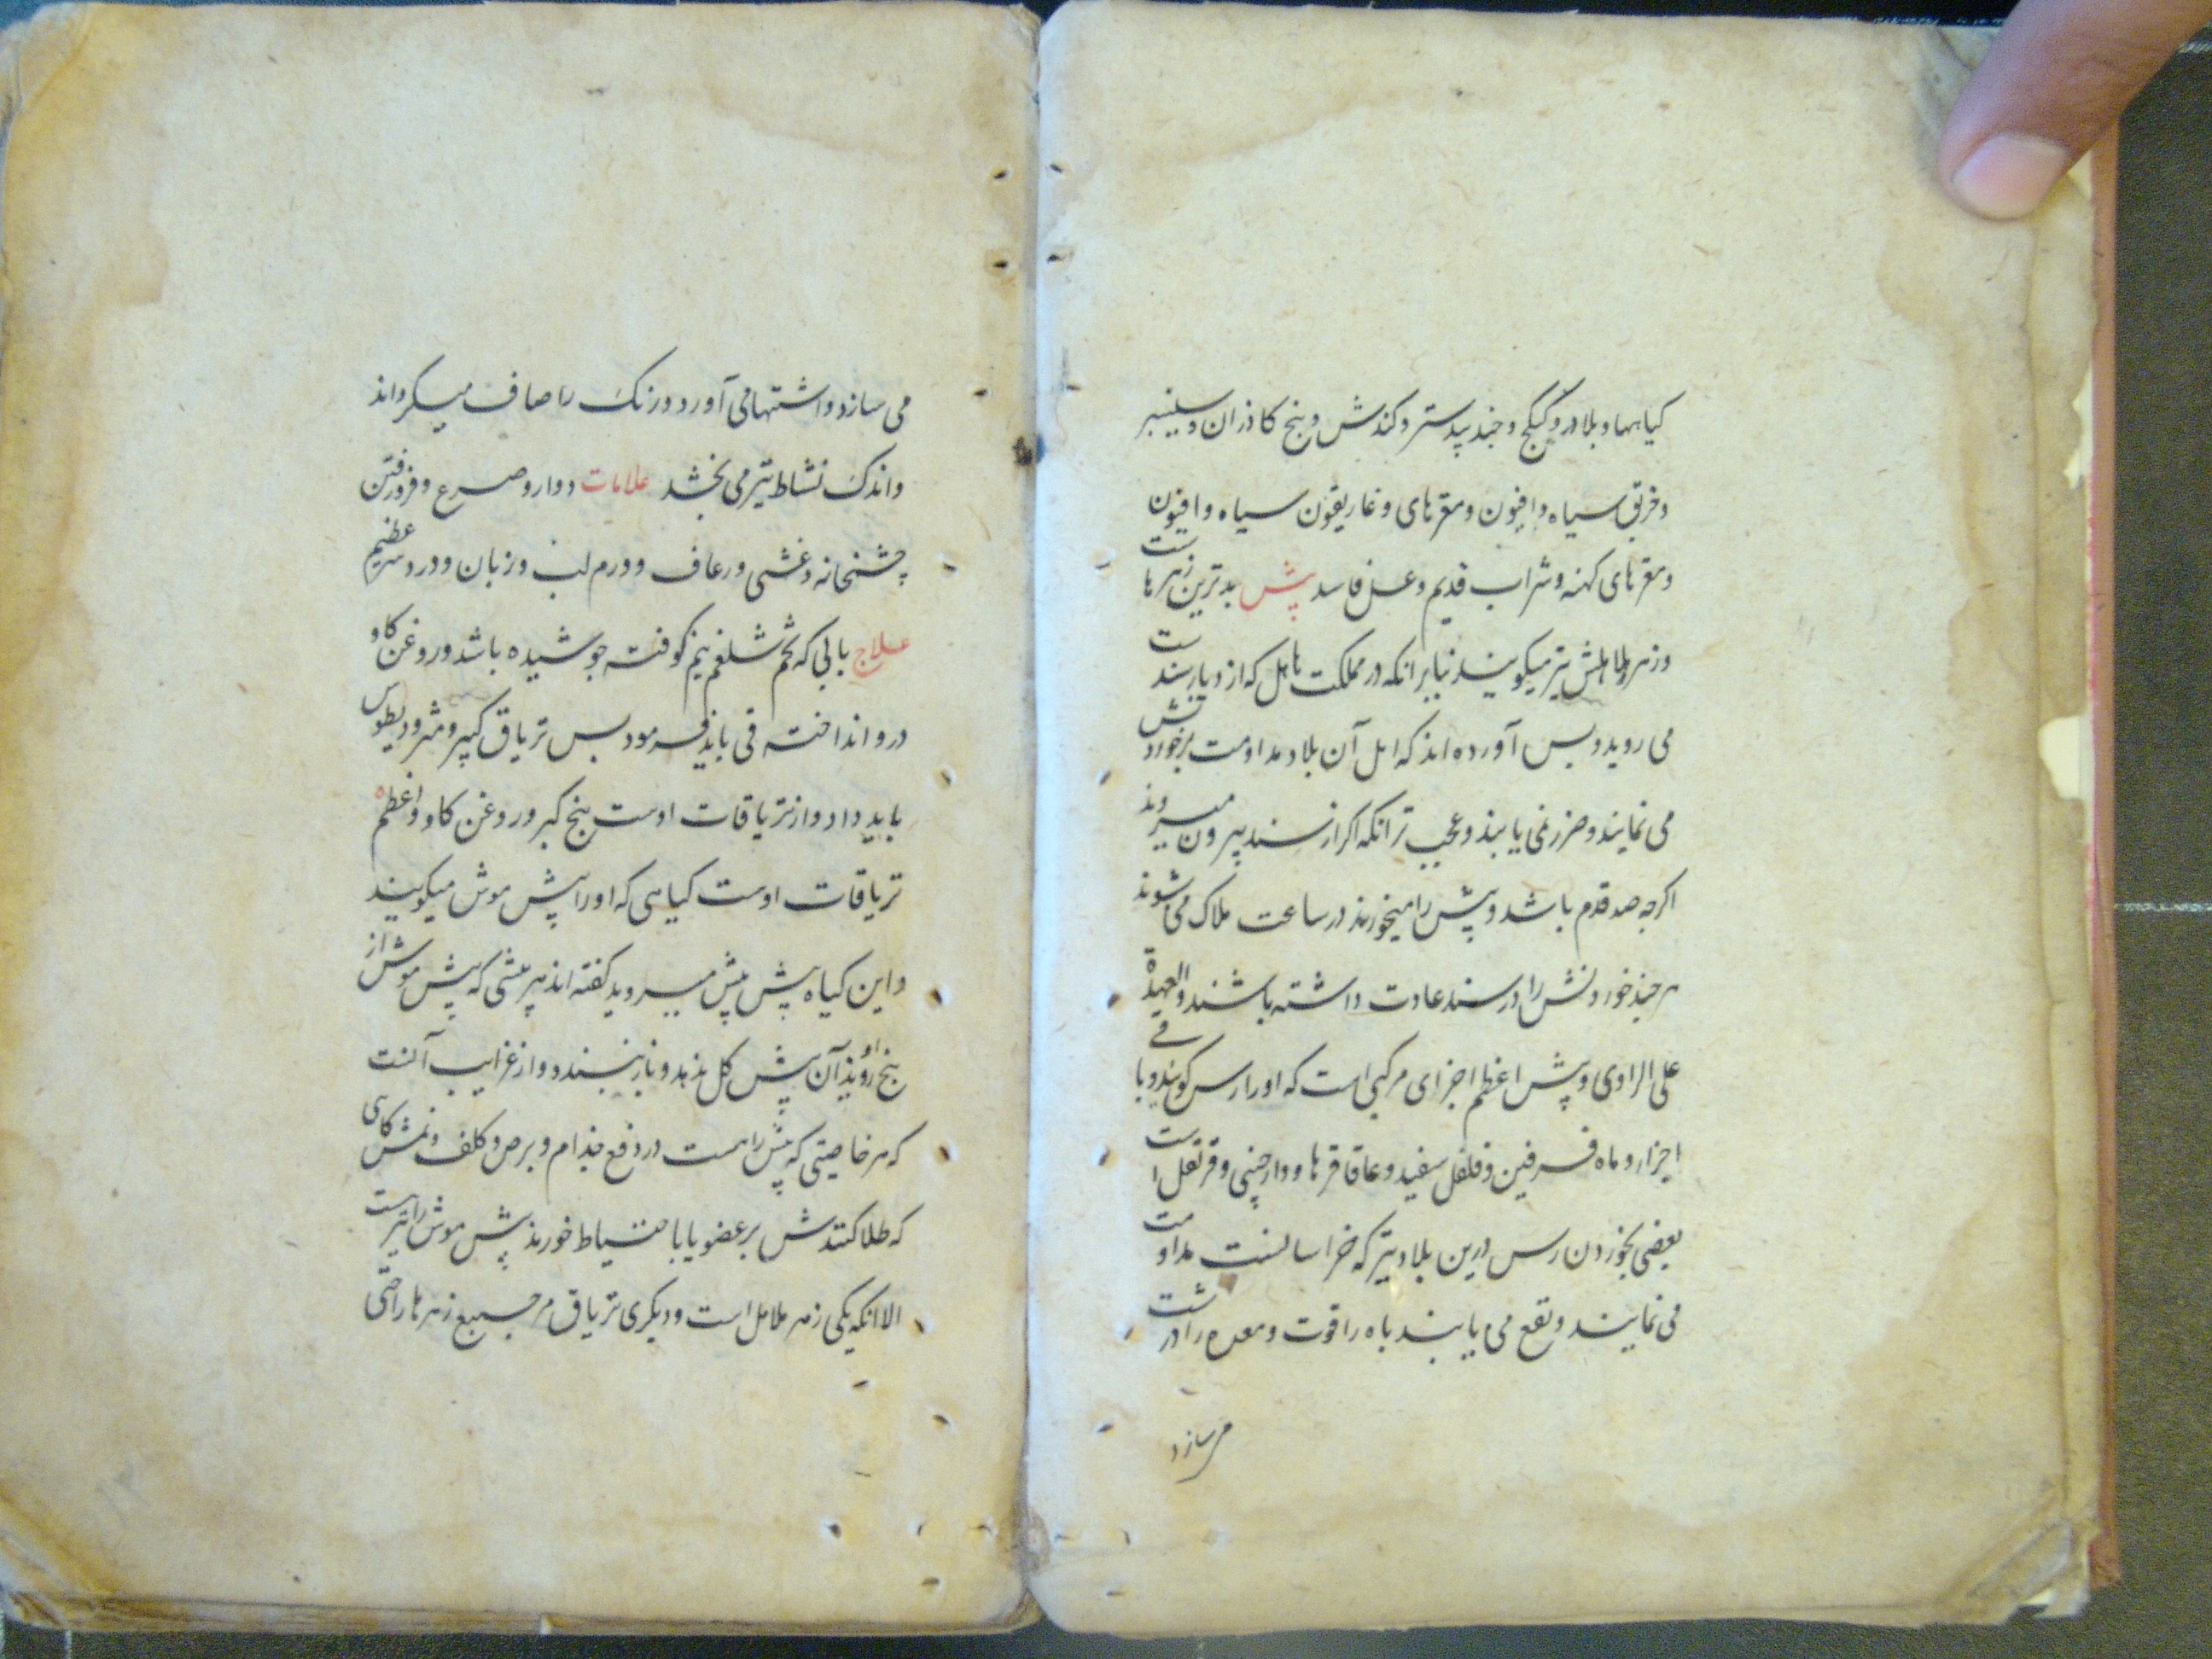 کیاهها و بلادر و کبیکج و جند بیدستر و کندش و بنج کاذران و سیسنبر
و خربق سیاه و افیون و مغزهای و غاریقون سیاه و افیون
و مغزهای کهنه و شراب قدیم و عسل فاسد پیش بدترین زهرهاست
و زهر هلاهلش نیز میکویند بنابر انکه در مملکت هلهل که از دیار سندست
می روید و بس آورده اند که اهل آن بلاد مداومت بر خوردنش
می نمایند و ضرر نمی یابند و عجیب تر انکه اکر از سند بیرون میروند
اکرچه صد قدم باشد و پیش را میخورند در ساعت هلاک می شوند
هرچند خوردنش را در سند عادت داشته باشند و العهدة
علی الراوی و پیش اعظم اجزای مرکبی است که او را رس کویند و باقی
اجزا رو ماه فرفین و فلفل سفید و عاقرقرحا و دارچینی و قرنفل است
بعضی بخوردن رس درین بلاد نیز که خراسانست مداومت
می نمایند و نفع می یابند باه را قوت و معده را درشت
می سازد
می سازد و اشتها می آورد و رنک را صاف میکرداند
و اندک نشاط نیز می بخشد علامات دوار و صرع و فرو رفتن
چشمخانه و غشی و رعاف و ورم لب و زبان و درد سر عظیم
علاج بآبی که تخم شلغم نیم کوفته جوشیده باشد و روغن کاو
درو انداخته قی باید فرمود بس تریاق کبیر و مثرودیطوس
باید داد و از تریاقات اوست بنج کبر و روغن کاو و اعظم
تریاقات اوست کیاهی که او را پیش موش میکویند
و این کیاه پیش پیش میروید کفته اند هر پیشی که پیش موش از
بنج او روید آن پیش کل ندهد و باز نبندد و از غرایب آنست
که هر خاصیتی که پیش راست در دفع جذام و برص و کلف و نمش کاهی
که طلا کنندش بر عضو یا با حتیاط خورند پیش موش را نیز است
الا انکه یکی زهر هلاهل است و دیکری تریاق هر جمیع زهرها را حتی